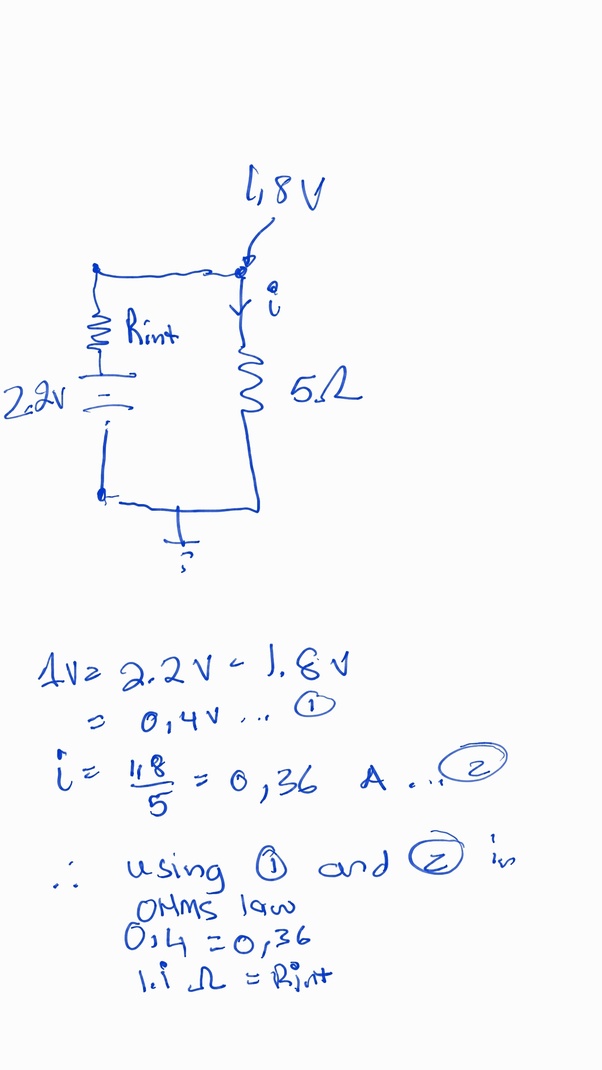 1,8V
i
Rint
2.2V
5Ω
ΔV= 2.2V - 1.8V
= 0,4V ... ①
i = 1,8/5 = 0,36 A ... ②
∴ using ① and ② in
OHMS law
0,4 = 0,36
1.1 Ω = Rint